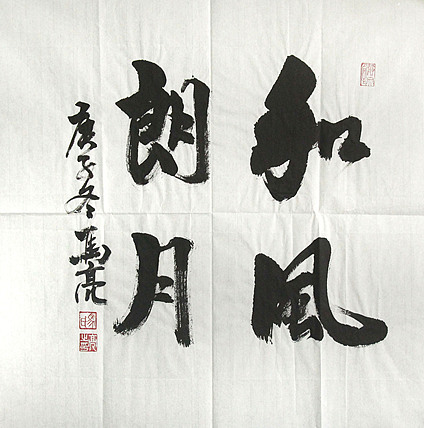 和風
朗月
庚子冬馬亮